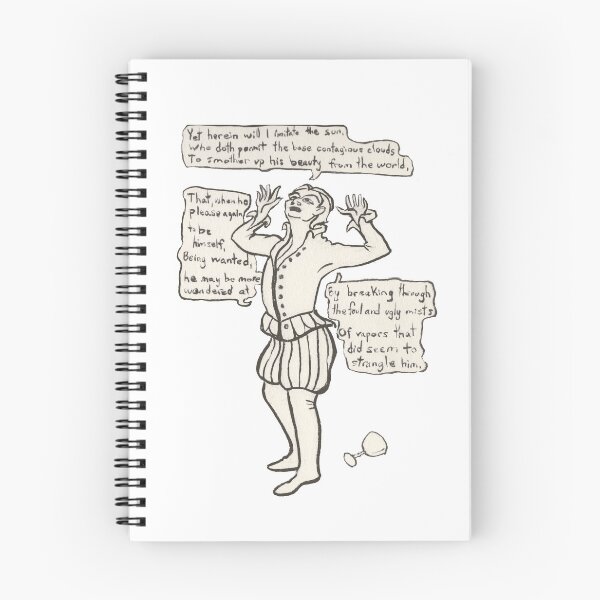 Yet herein will I imitate the sun,
Who doth permit the base contagious clouds
To smother up his beauty from the world,
That, when he
please again
to be
himself,
Being wanted,
he may be more
wondered at
By breaking through
the foul and ugly mists
Of vapors that
did seem to
strangle him.